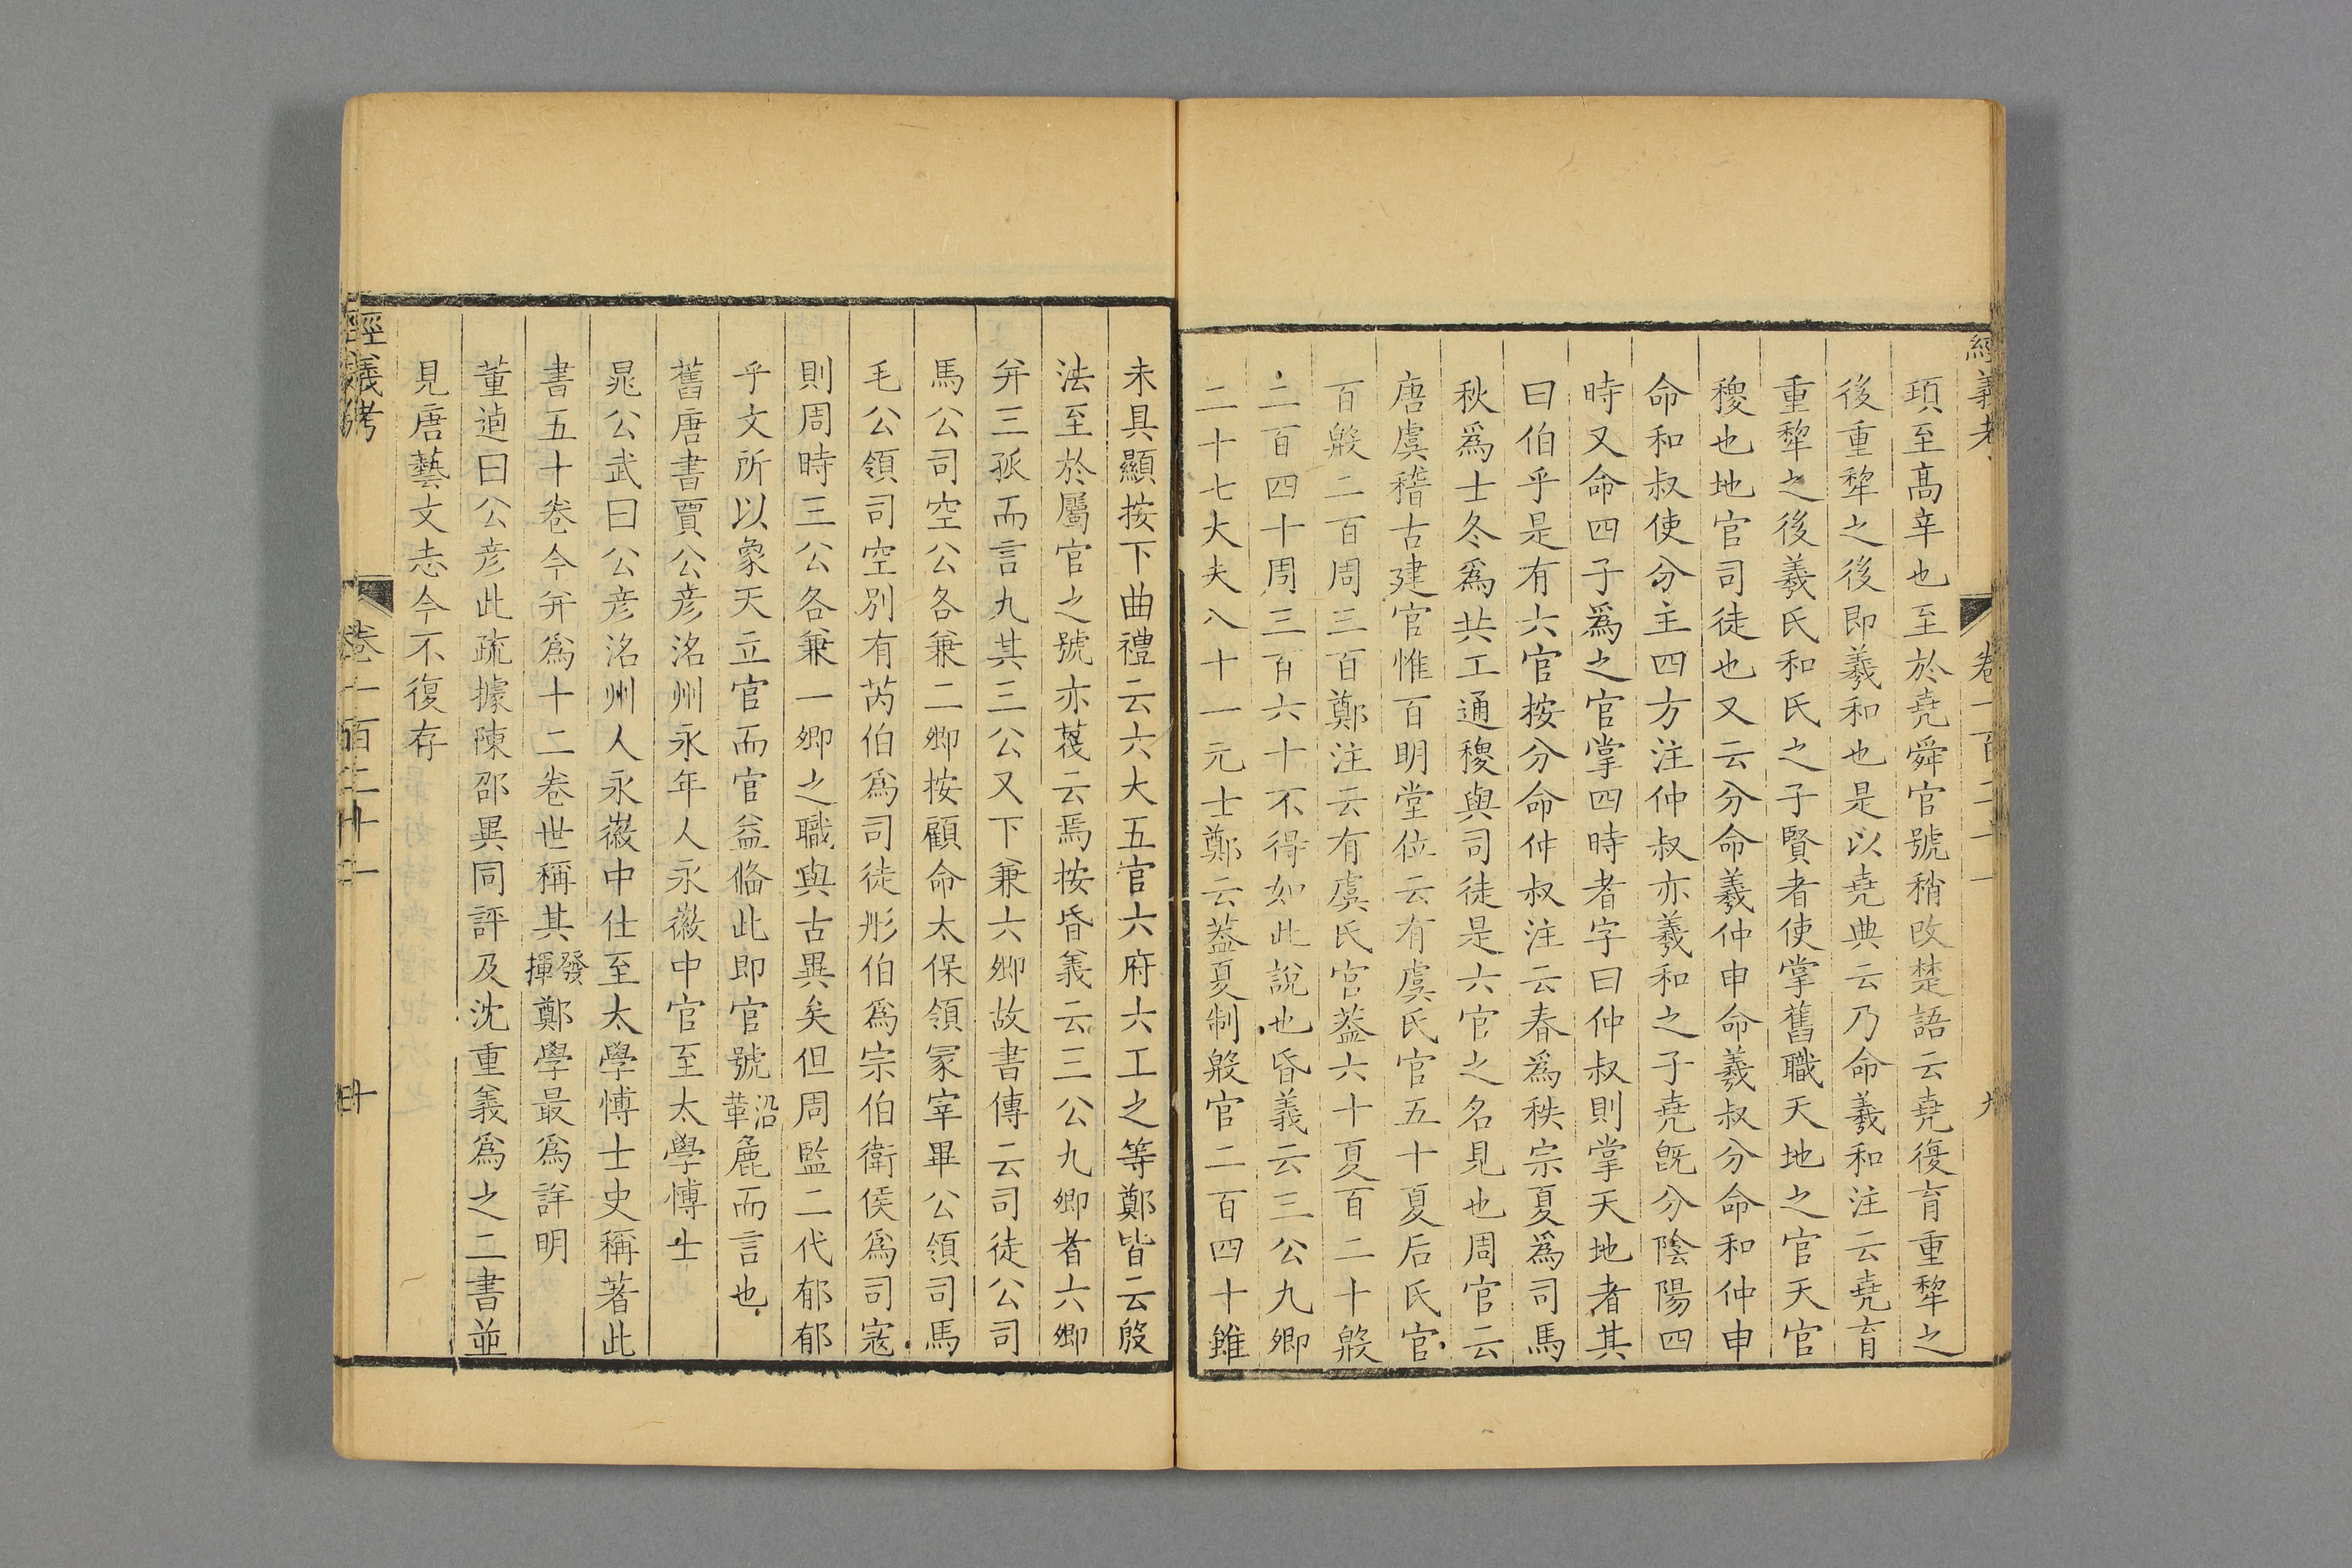 經義考 卷一百二十一 九
頊至高辛也至於堯舜官號稍改楚語云堯復育重犂之
後重犂之後即羲和也是以堯典云乃命羲和注云堯育
重犂之後羲氏和氏之子賢者使掌舊職天地之官天官
稷也地官司徒也又云分命羲仲申命羲叔分命和仲申
命和叔使分主四方注仲叔亦羲和之子堯既分陰陽四
時又命四子爲之官掌四時者字曰仲叔則掌天地者其
曰伯乎是有六官按分命仲叔注云春爲秩宗夏爲司馬
秋爲士冬爲共工通稷與司徒是六官之名見也周官云
唐虞稽古建官惟百明堂位云有虞氏官五十夏后氏官
百殷二百周三百鄭注云有虞氏官葢六十夏百二十殷
二百四十周三百六十不得如此說也昏義云三公九卿
二十七大夫八十一元士鄭云葢夏制殷官二百四十雖
未具顯按下曲禮云六大五官六府六工之等鄭皆云殷
法至於屬官之號亦蔑云焉按昏義云三公九卿者六卿
并三孤而言九其三公又下兼六卿故書傳云司徒公司
馬公司空公各兼二卿按顧命太保領冢宰畢公領司馬
毛公領司空別有芮伯爲司徒彤伯爲宗伯衛侯爲司寇
則周時三公各兼一卿之職與古異矣但周監二代郁郁
乎文所以象天立官而官益備此即官號沿革麄而言也
舊唐書賈公彥洺州永年人永徽中官至太學博士
晁公武曰公彥洺州人永徽中仕至太學博士史稱著此
書五十卷今并爲十二卷世稱其發揮鄭學最爲詳明
董逌曰公彥此疏據陳邵異同評及沈重義爲之二書並
見唐藝文志今不復存
經義考 卷一百二十一 十